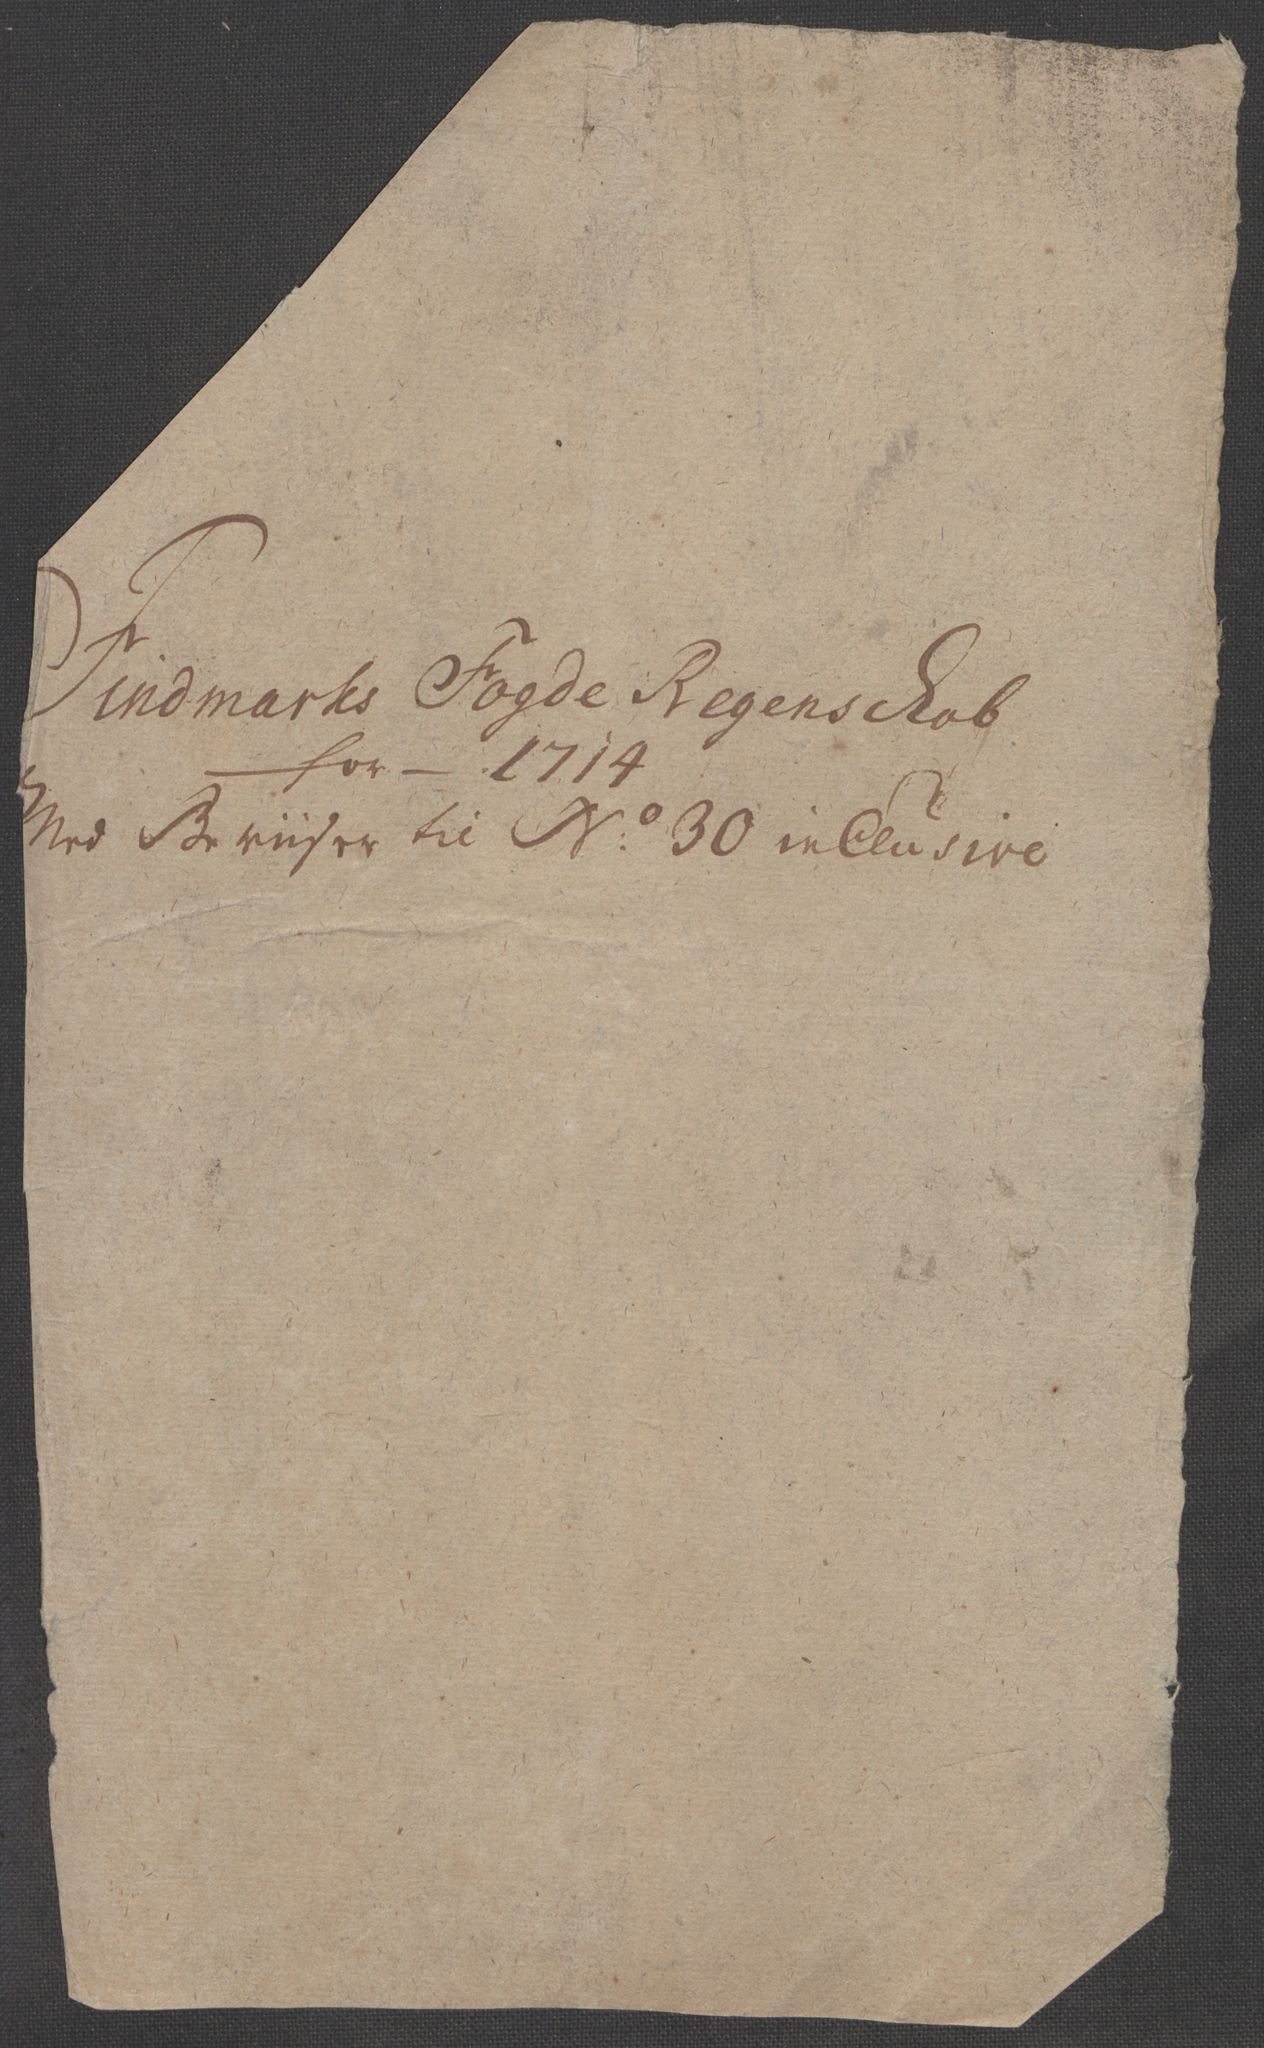 Findmarks Fogde Regenskab
for 1714
Med Beviiser til N:o 30 inclusive